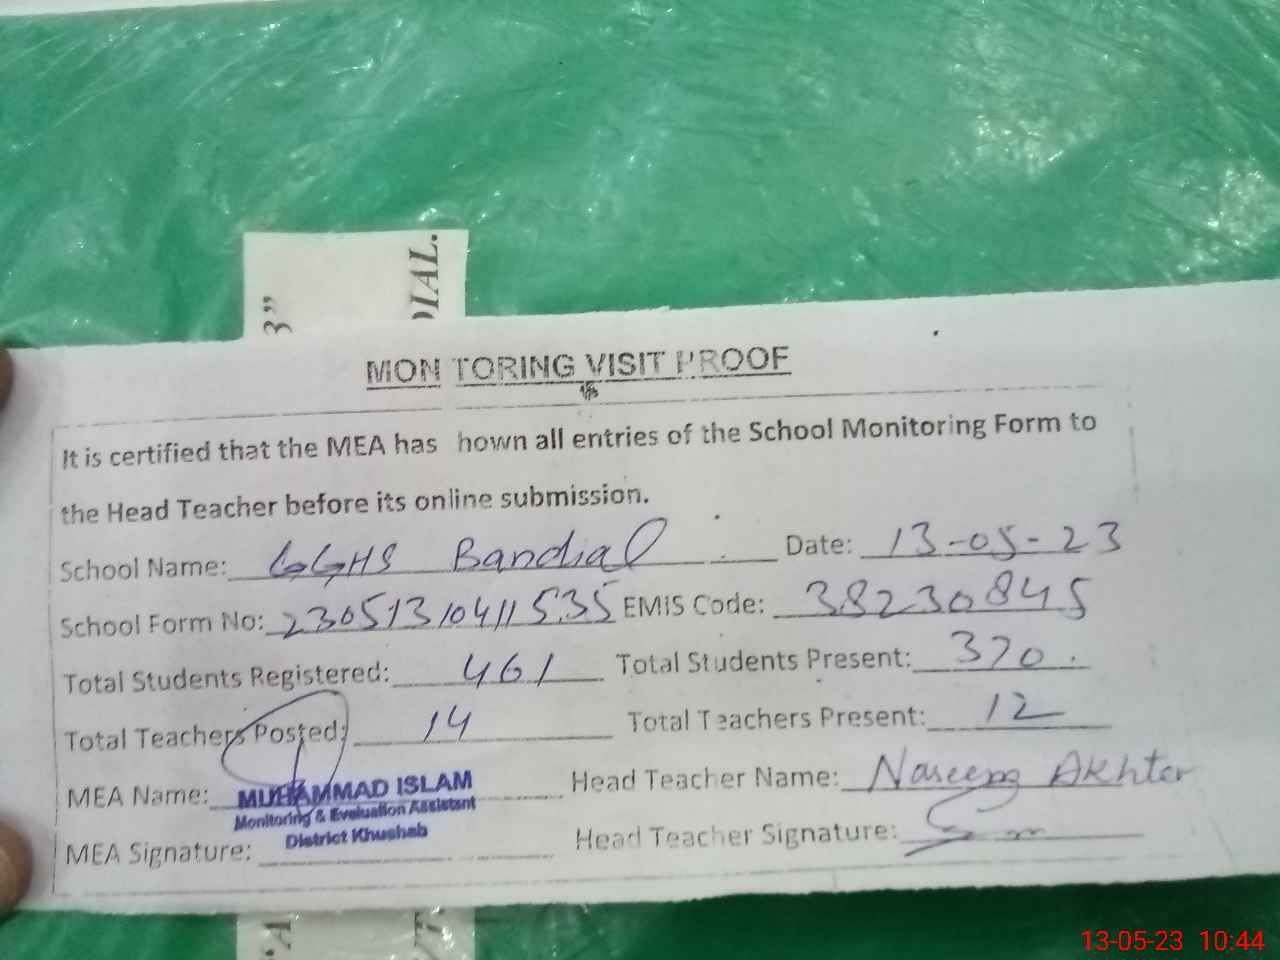 3"
DIAL.
MON TORING VISIT PROOF
It is certified that the MEA has hown all entries of the School Monitoring Form to
the Head Teacher before its online submission.
School Name: GGHS Bandial Date: 13-05-23
School Form No: 23051310411535 EMIS Code: 38230845
Total Students Registered: 461 Total Students Present: 370.
Total Teachers Posted: 14 Total Teachers Present: 12
MEA Name: MUHAMMAD ISLAM Head Teacher Name: Naseem Akhter
Monitoring & Evaluation Assistant
District Khushab
MEA Signature: Head Teacher Signature:
"A
13-05-23 10:44